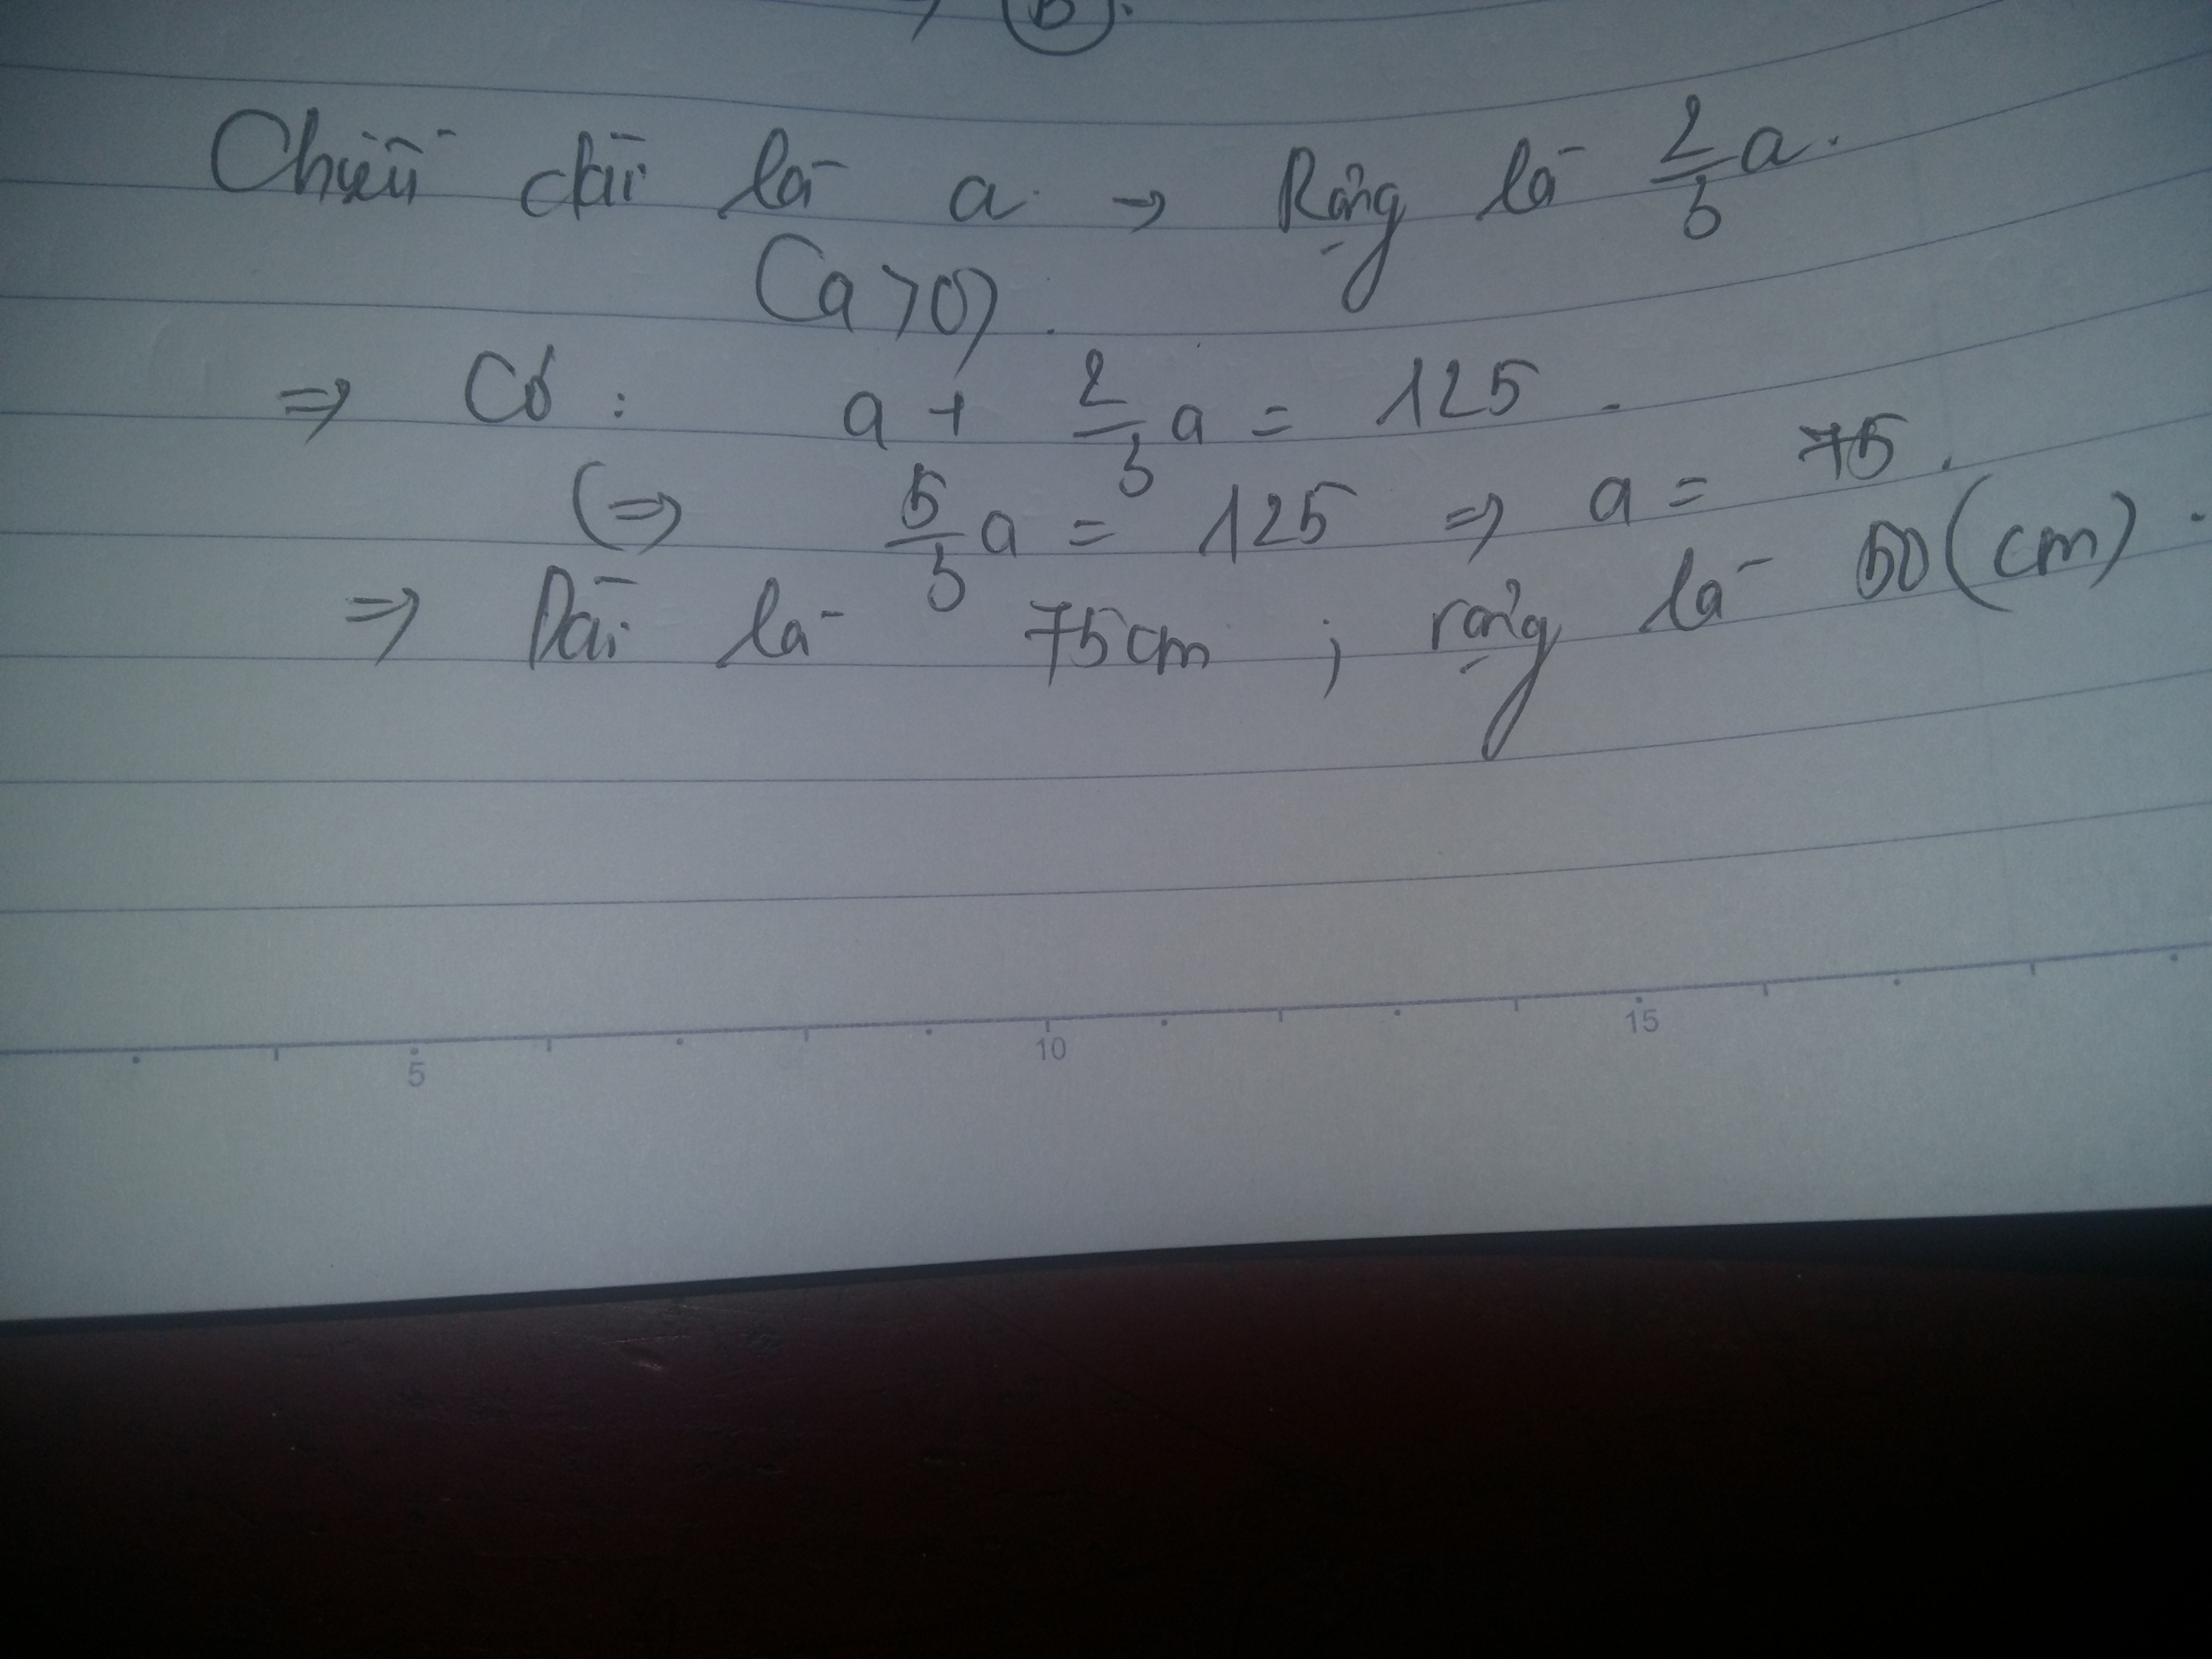 B.
Chiều dài là a → Rộng là 2/3 a.
(a>0).
⇒ Có : a + 2/3 a = 125.
(⇒ 5/3 a = 125 ⇒ a = 75.
⇒ Dài là 75cm ; rộng là 50 (cm).
5 10 15